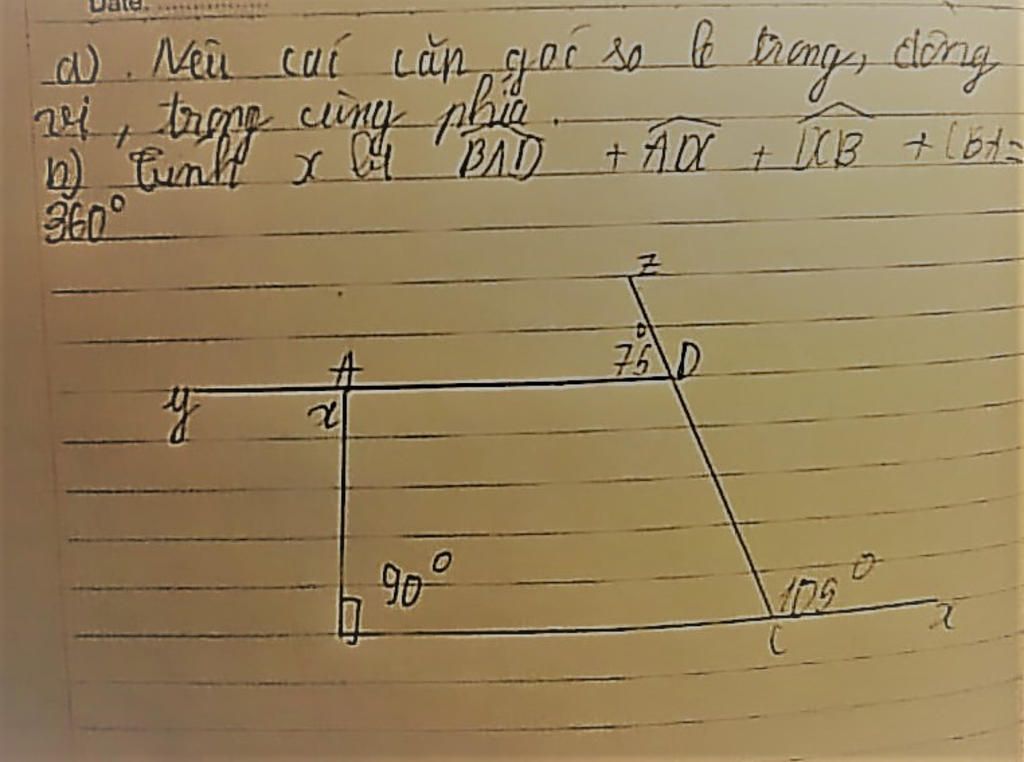 Date: ..................
a). Nêu cái cặp goí so le trong, dồng
vi, trong cùng phía.
b) Tính x lý BAD + ADC + DCB + CBA =
360°
z
75° D
A
y
x
90°
105°
C x